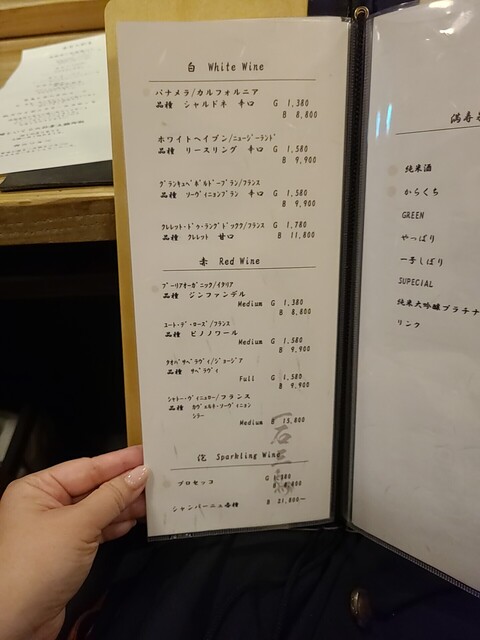 白 White Wine
パナメラ/カルフォルニア G 1,380
品種 シャルドネ 辛口 B 8,800
ホワイトヘイブン/ニュージーランド G 1,580
品種 リースリング 辛口 B 9,900
グランキュベ ボルドーブラン/フランス G 1,580
品種 ソーヴィニョンブラン 辛口 B 9,900
クレレット・ドゥ・ラングドック/フランス G 1,780
品種 クレレット 甘口 B 11,800
赤 Red Wine
プーリアオーガニック/イタリア
品種 ジンファンデル
Medium G 1,380
B 8,800
コート・デ・ローズ/フランス
品種 ピノノワール
Medium G 1,580
B 9,900
タオベサペラヴィ/ジョージア
品種 サペラヴィ
Full G 1,580
B 9,900
シャトー・ヴィニョロー/フランス
品種 カヴェルネ・ソーヴィニョン
シラー
Medium B 15,800
泡 Sparkling Wine
プロセッコ G 1,380
シャンパーニュ各種 B 21,800〜
満寿泉
純米酒
からくち
GREEN
やっぱり
一手しぼり
SUPECIAL
純米大吟醸プラチナ
リンク